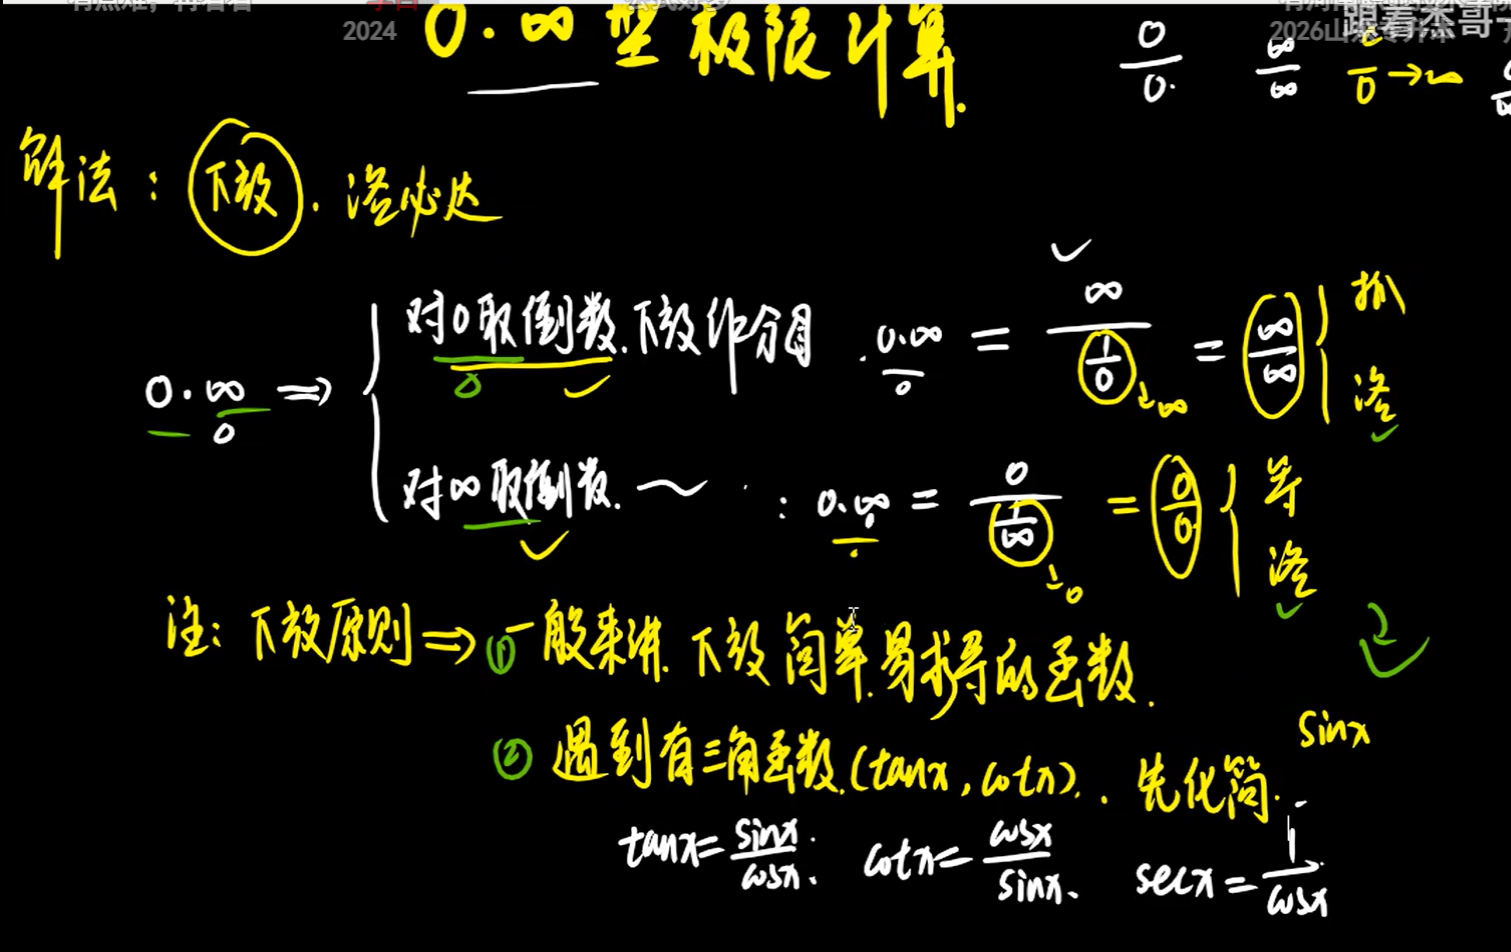 2024
2026山东专升本
跟着杰哥
0·∞型极限计算.
0/0. ∞/∞ /0→∞
解法：下放.洛必达
对0取倒数.下放作分母. 0·∞ = ∞/(1/0) = ∞/∞ { 抓
洛
0·∞ ⇒
对∞取倒数. ～ : 0·∞ = 0/(1/∞) = 0/0 { 等
洛
注：下放原则⇒①一般来讲.下放简单.易求导的函数.
②遇到有三角函数.(tanx, cotx). 先化简.
sinx
tanx=sinx/cosx. cotx=cosx/sinx. secx=1/cosx